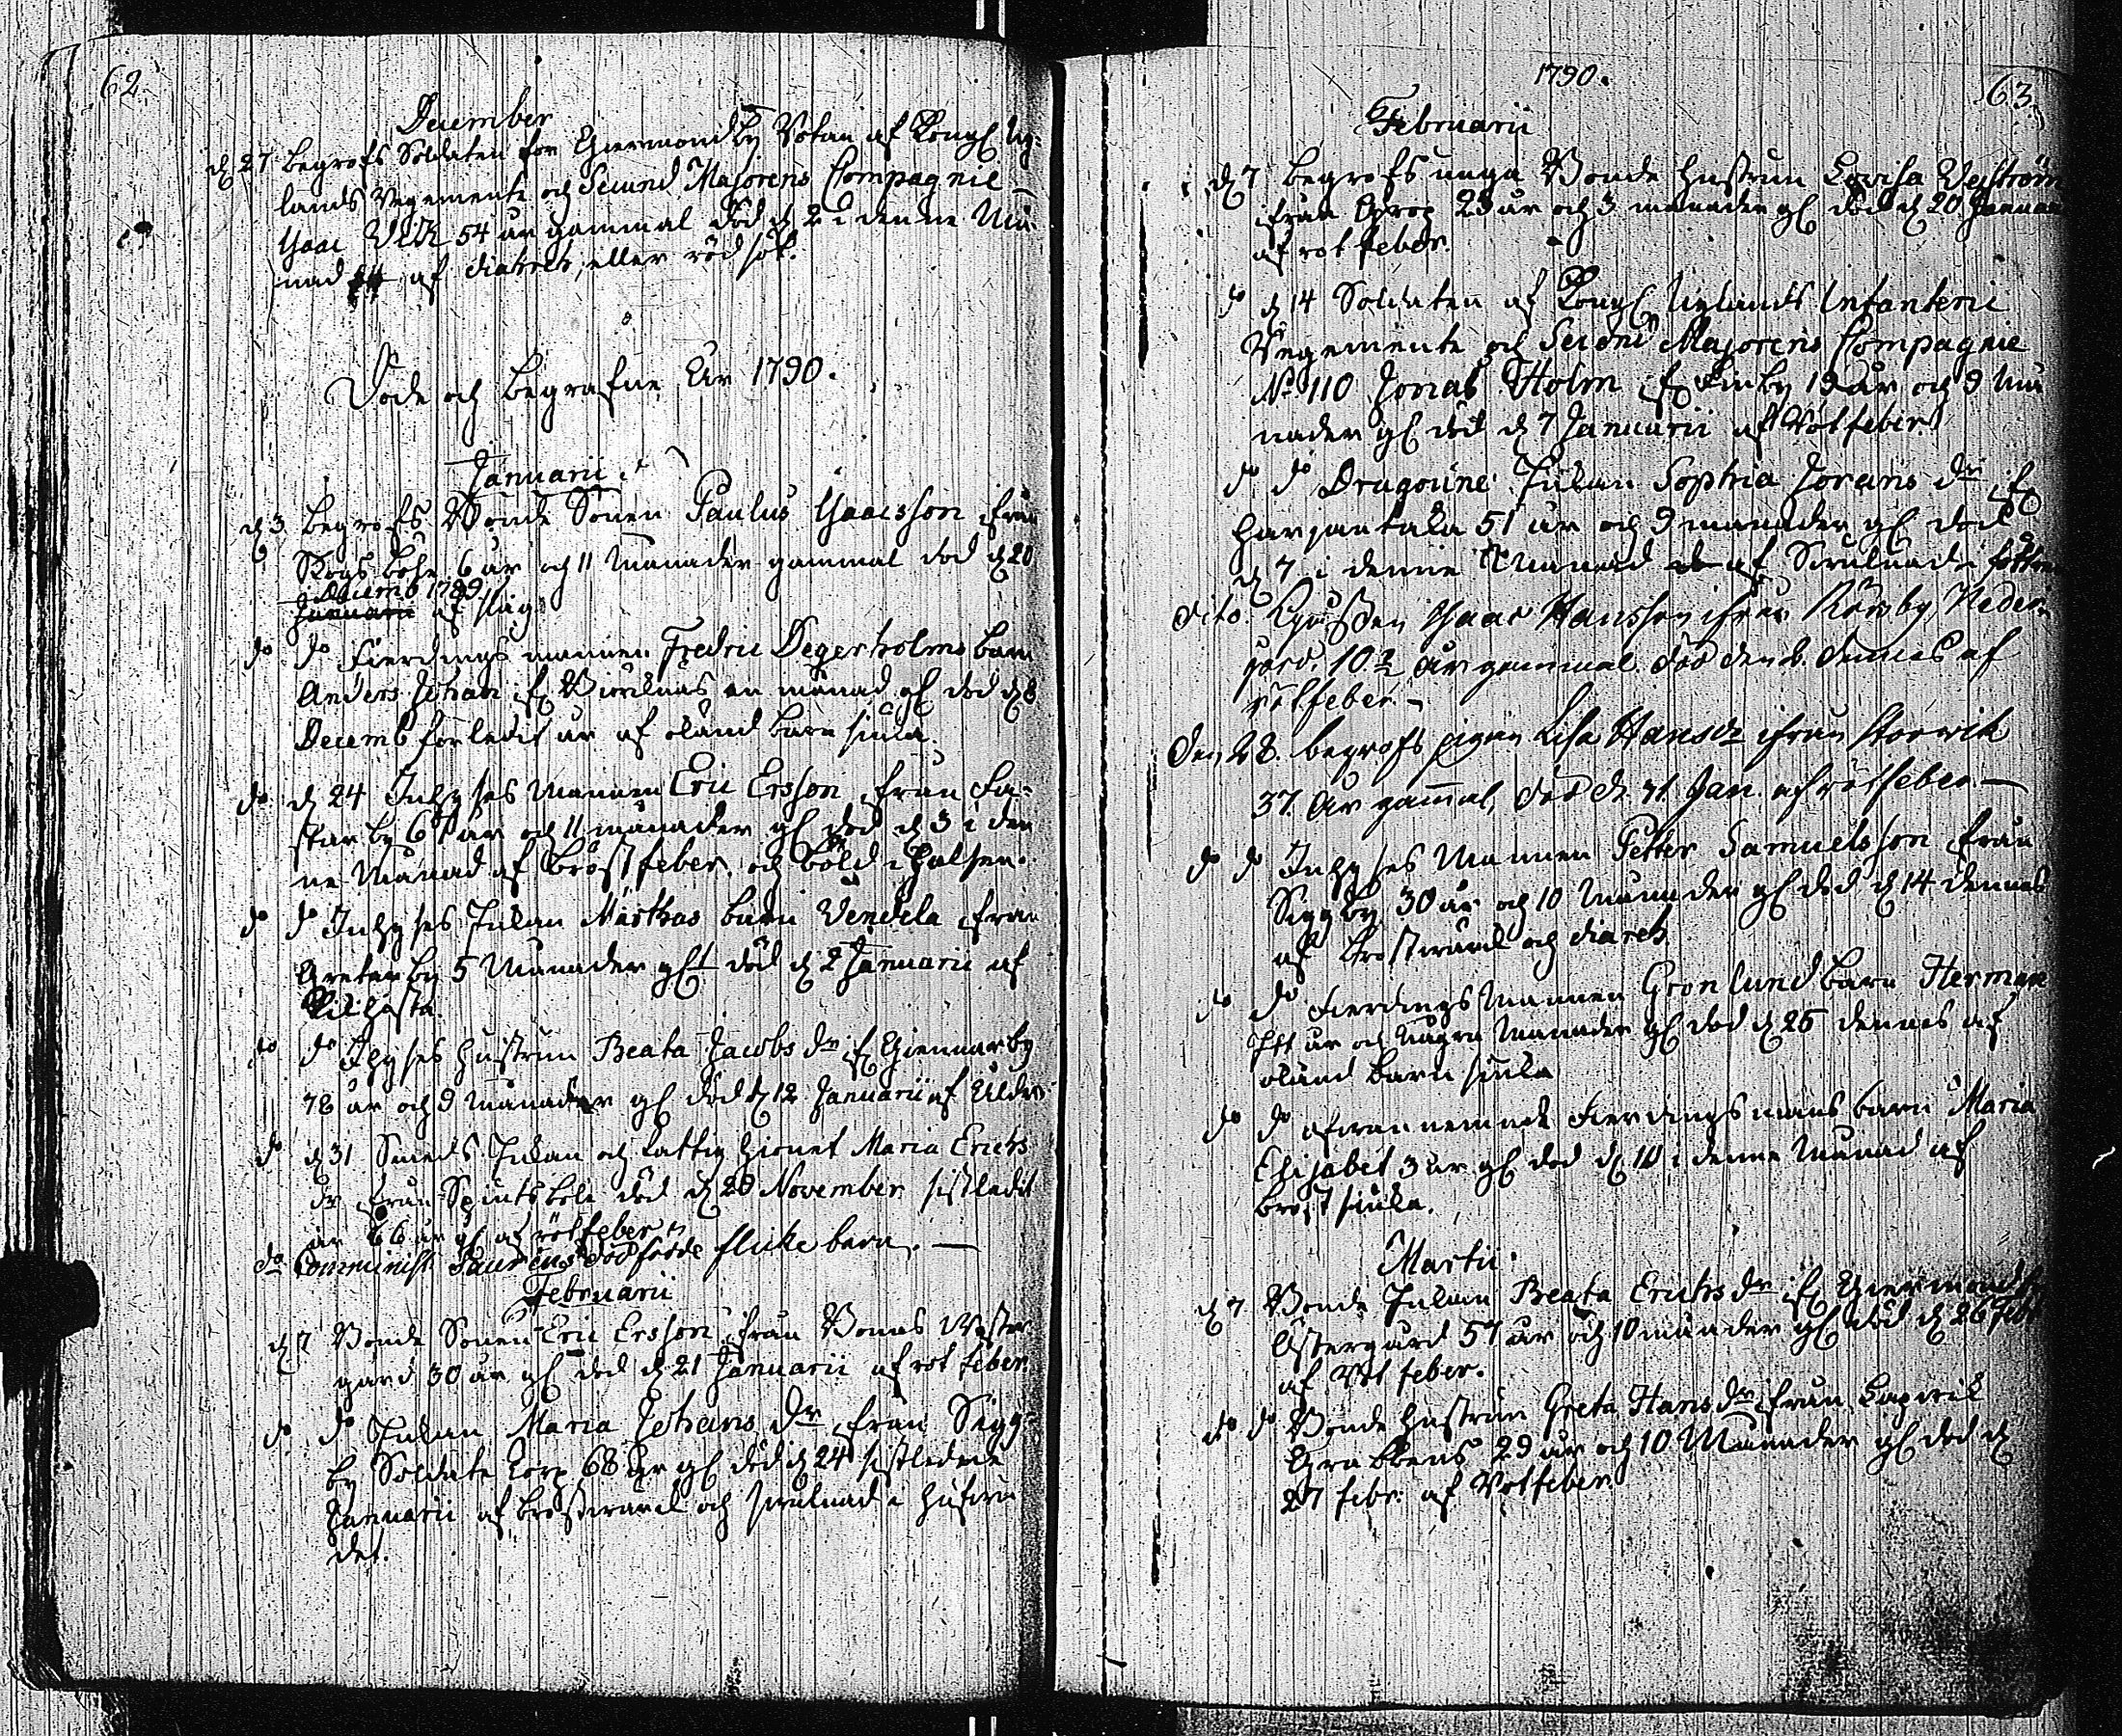 62.
December
d 27 begrofs Soldaten for Giermondby Rotan af Kongl Ny-
lands Regemente och Secund Majorens Compagnie
Isaac 54 år gammal död d 2 i denne Må-
nad af diahreh, eller rödsot.
Döde och begrafne År 1790.
Januarii
d 3 begrofs Bonde Sonen Paulus Isaacsson ifrån
Skogs böhle 6 år och 11 månader gammal död d 20
Decemb 1789
Januarii af slag
do do Fierdings mannen Fredric Degerholms barn
Anders Johan ifr en månad gl död d 8
Decemb förledit år af okänd barn siuka.
do d 24 Inhyses Mannen Eric Ersson från
by 61 år och 11 månader gl död d 3 i den
ne Månad af bröstfeber och böld i halsen.
do do Inhyses Enkan Marthas barn Vendela från
by 5 Månader gl död d 2 Januarii af
Kikhosta.
do do Ihyses hustrun Beata Jacobs dr ifr Giennarby
78 år och 9 månader gl död d 12 Januarii af Ålder
do d 31 Smeds Enkan och fattig hionet Maria Erichs
dr från Spints böle död d 28 November sistledit
år 66 år gl af rötfeber
do Comminist Paureus dödfödde flicke barn. —
Februarii
d 7 Bonde Sonen Eric Ersson från Bonas Wester
gard 30 år gl död d 21 Januarii af röt feber
do do Enkan Maria Johans dr från Sigg-
by Soldate torp 68 år gl död d 24 sistledne
Januarii af bröstwärck och swulnad i hufwu
det.
1790.
63.
Februarii
d 7 begrofs unga Bonde hustrun Lovisa
ifrån 23 år och 3 månader gl död d 20 Januarii
af röt feber.
do d 14 Soldaten af Kongl Nylands Infanterie
Regemente och Secund Majorens Compagnie
No 110 Jonas Holm ifr Finby 19 år och 9 må
nader gl död d 7 Januarii af Rötfeber
do do Dragoune Enkan Sophia Jorans dr ifr
Harjantaka 51 år och 9 månader gl död
d 7 i denne Månad af Swulnad i
dito. Gossen Isaac Hansson ifrån Rösby Neder-
gård. 10½ år gammal. död den 8. dennes af
rötfeber. —
den 28. begrofs pigan Lisa Hansdr ifrån Storwik
37. År gammal, död d. 31. Jan. af rötfeber —
do do Inhyses Mannen Petter Samuelsson från
Siggby 30 år och 10 Månader gl död d 14 dennes
af bröstwärck och diareh
do do Fierdings Mannen Gronlund barn Herman
Ett år och några Månader gl död d 25 dennes af
okänd barn siuka
do do ofwannemnde Fierdingsmans barn Maria
Elisabet 3 år gl död d 10 i denne Månad af
bröst siuka.
Martii
d 7 Bonde Enkan Beata Erichs dr ifr Giermondby
Östergård 57 år och 10 månader gl död d 26 febr
af Röt feber.
do do Bonde hustrun Greta Hans dr ifrån Kapwik
Grabbens 29 år och 10 Månader gl död d
27 febr. af Rötfeber.